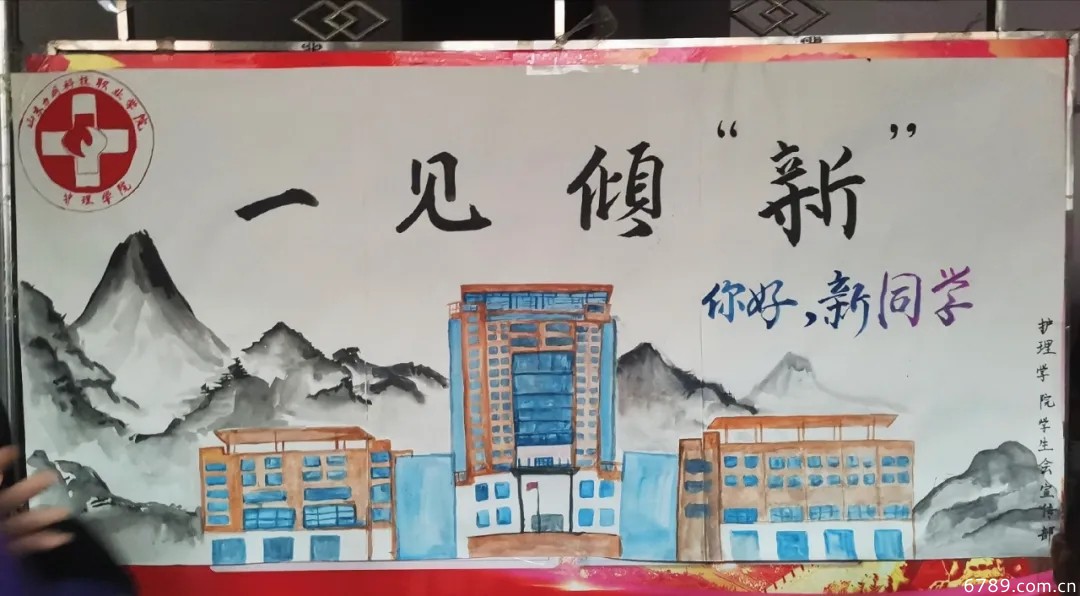 山东力明科技职业学院
护理学院
一见倾“新”
你好，新同学
护理学院学生会宣传部
6789.com.cn